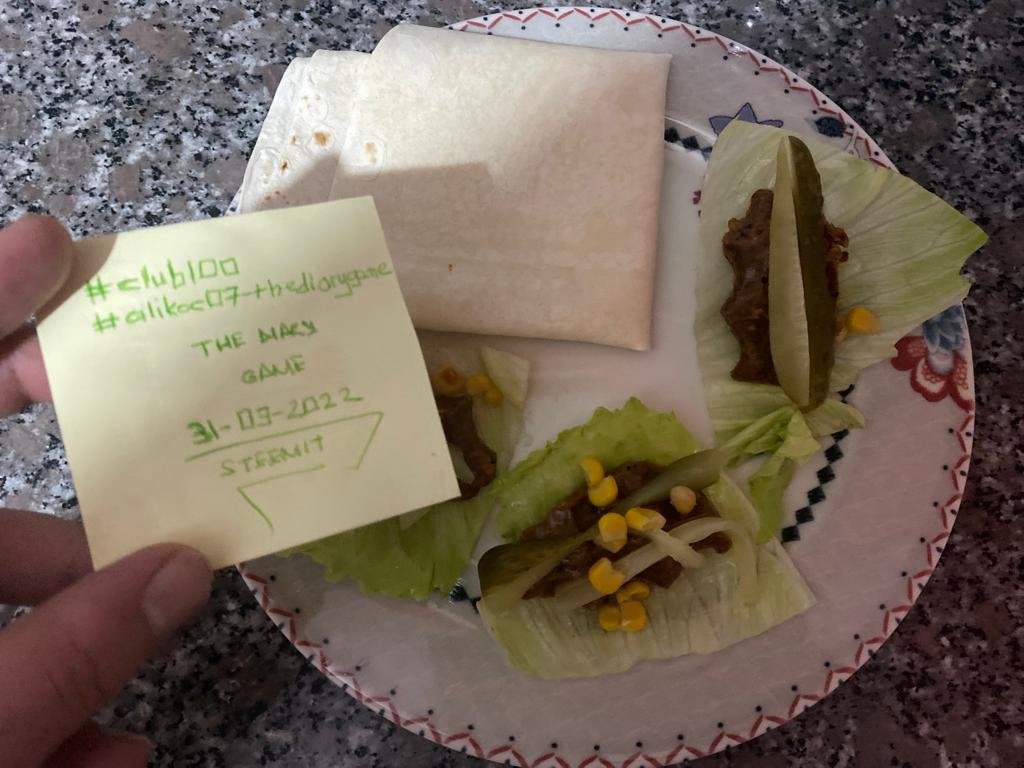 #club100
#alikoc07-thediarygame
THE DIARY
GAME
31-03-2022
STEEMIT